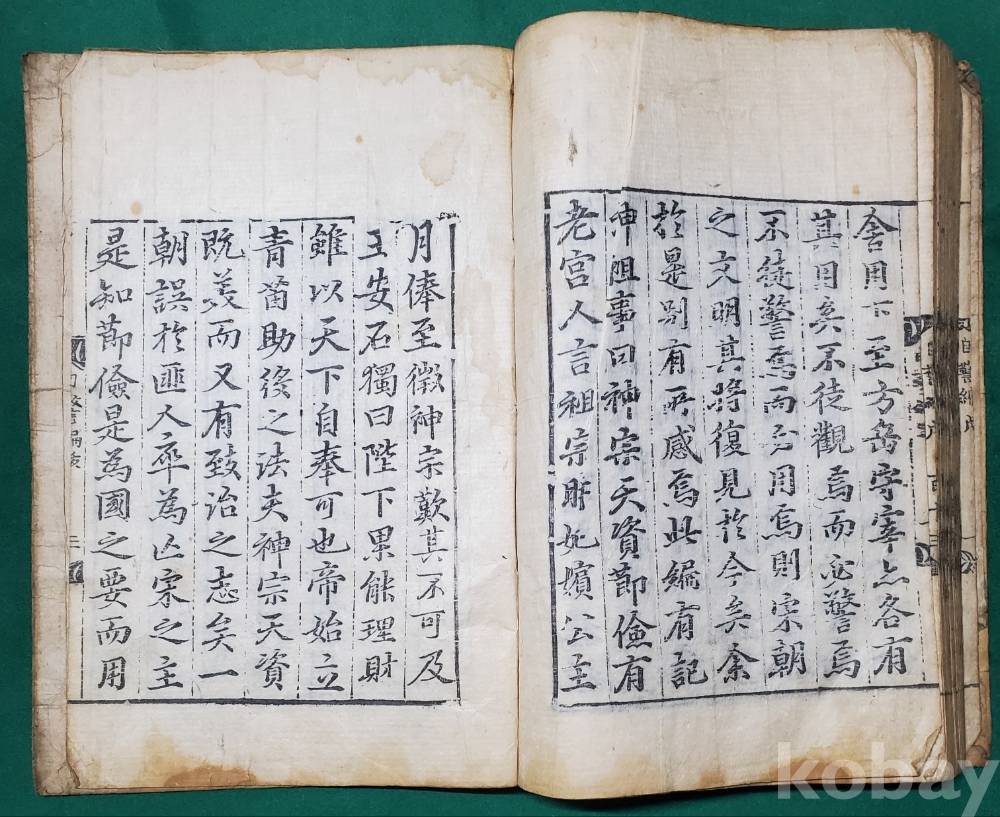 舍用下至方岳守宰亦各有
其用矣不徒觀焉而必警焉
不徒警焉而必用焉則宋朝
之文明其時復見於今矣余
於是別有所感焉此編有記
申 事曰神宗天資節儉有
老宮人言祖宗時妃嬪公主
月俸至微神宗歎其不可及
王安石獨曰陛下果能理財
雖以天下自奉可也帝始立
青苗助役之法夫神宗天資
既美而又有致治之志矣一
朝誤於匪人卒為亡宋之主
是知節儉是為國之要而用
自警編
二
kobay